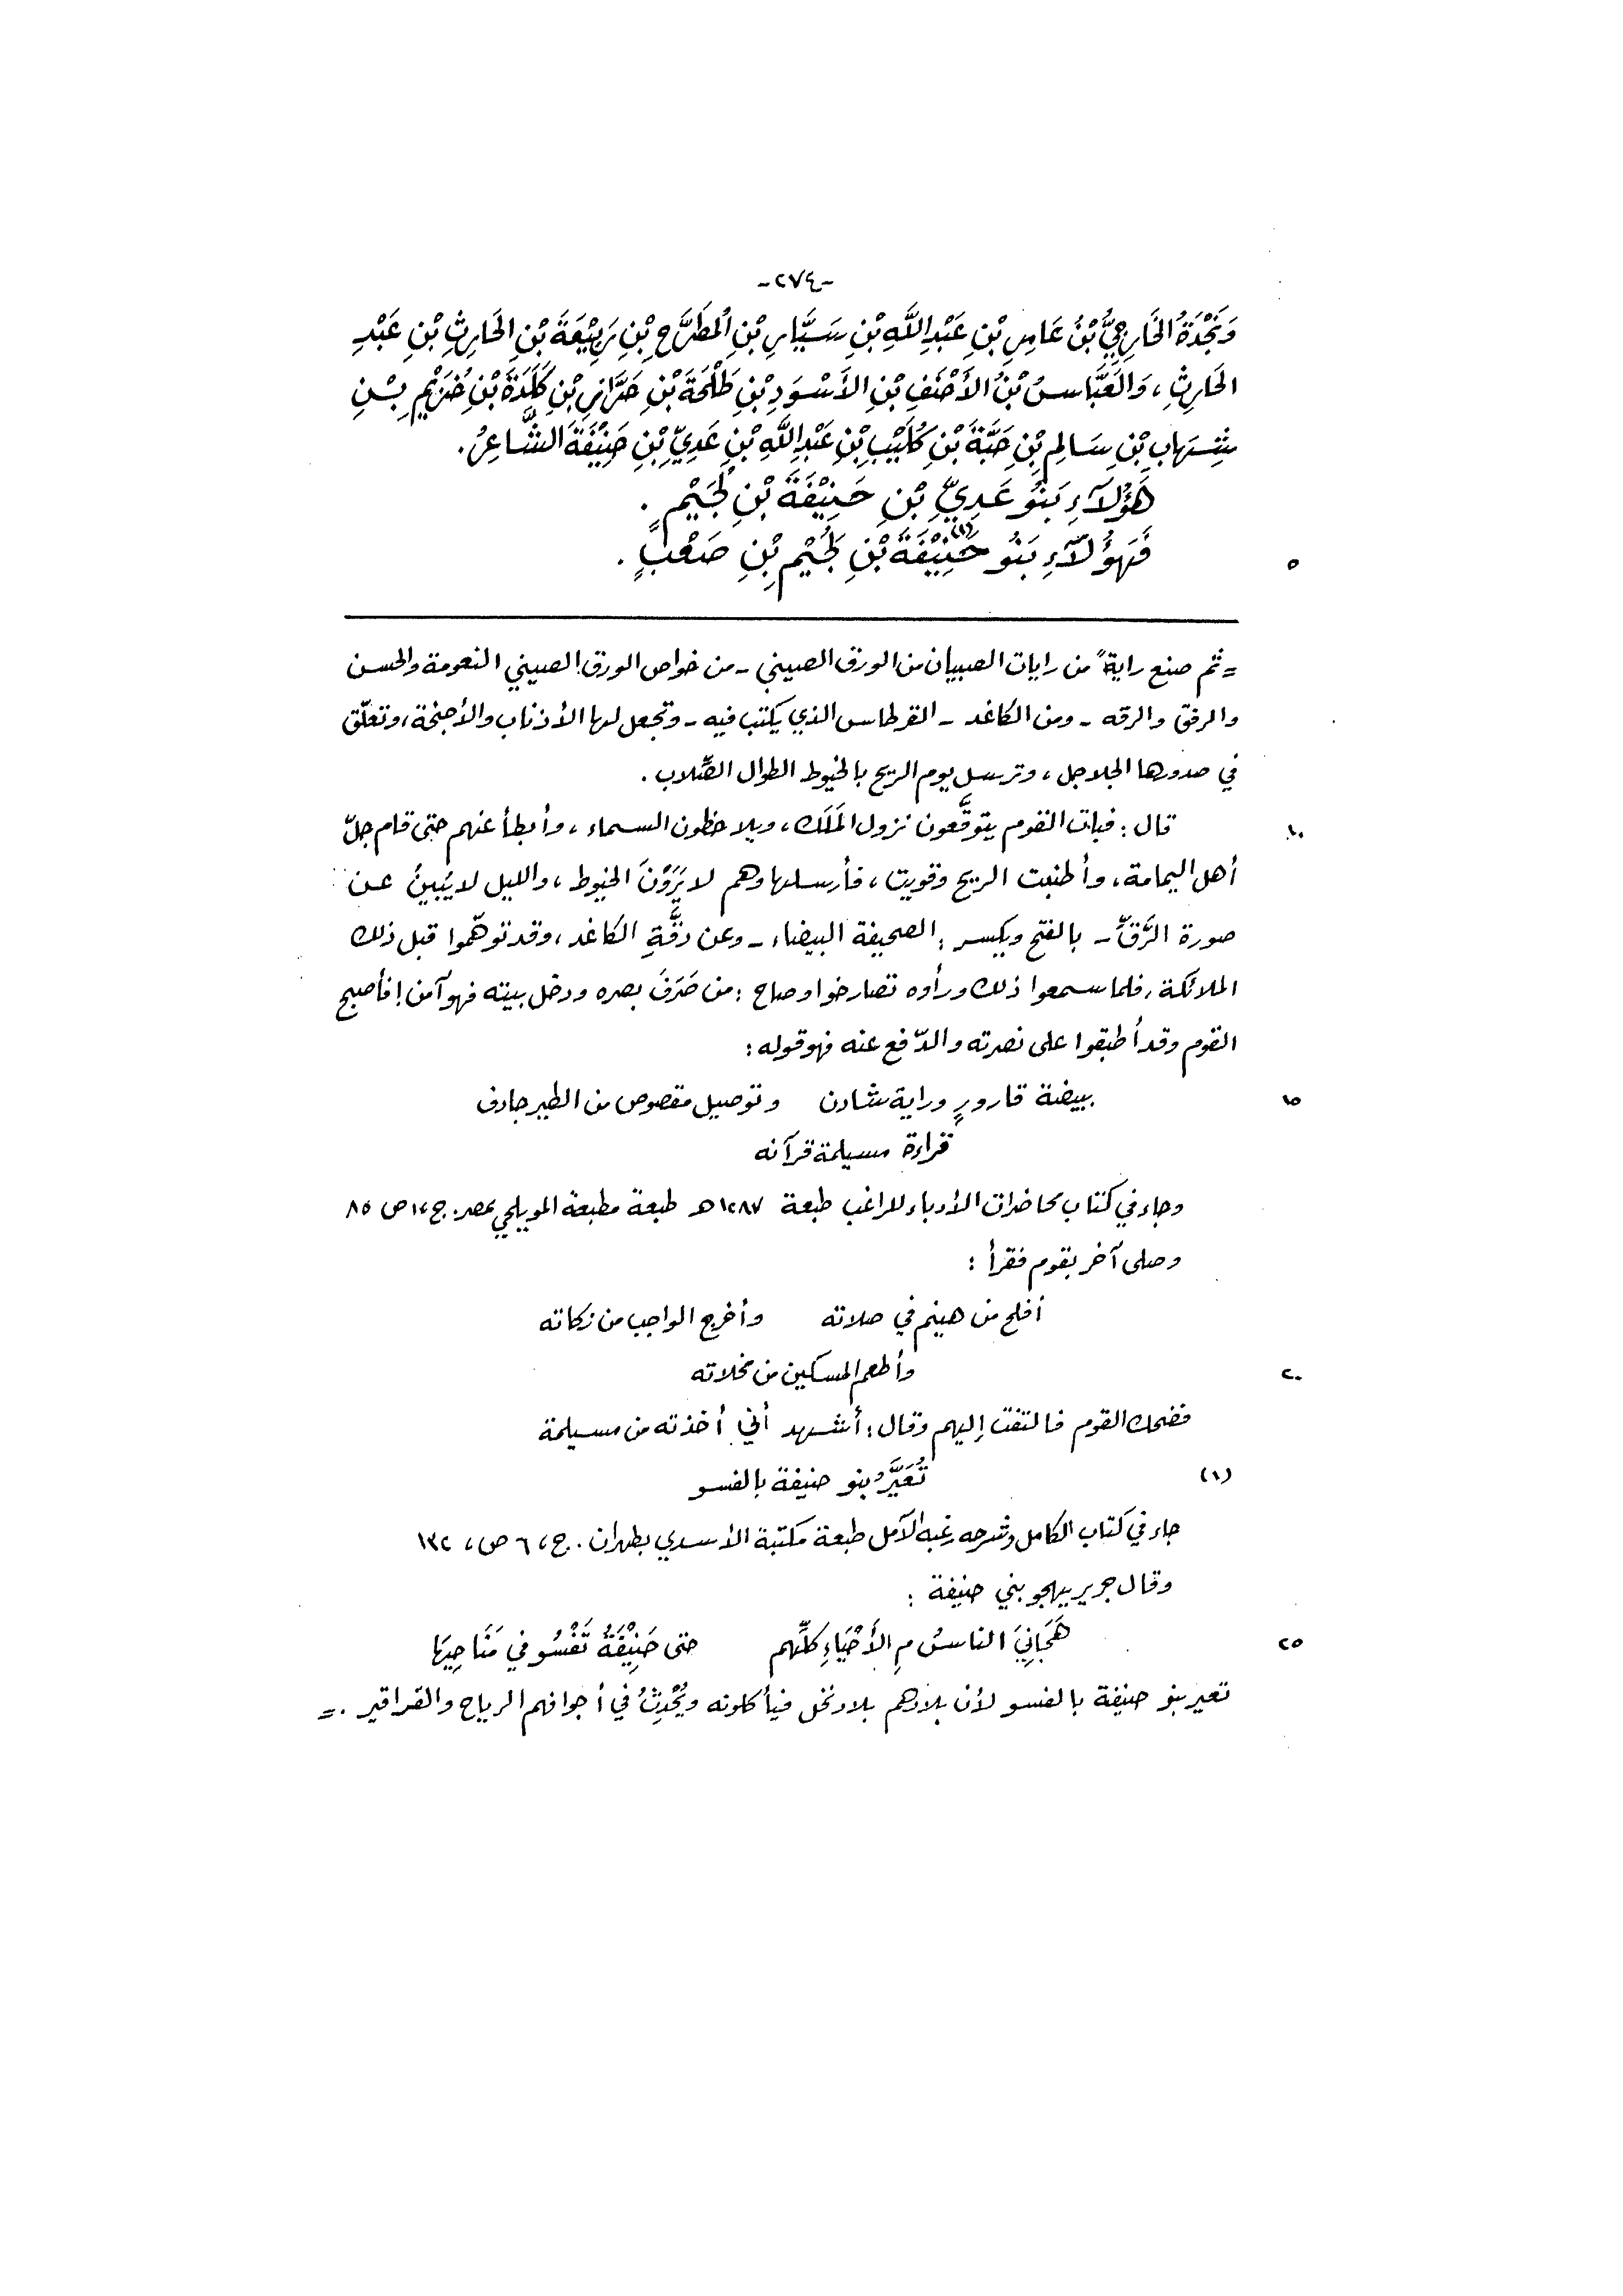 -٢٧٤-
وَنَجْدَةُ الخَارِجِيُّ بْنُ عَامِرِ بْنِ عَبْدِ اللَّهِ بْنِ سَيَّارِ بْنِ المُطَرَّحِ بْنِ رَبِيْعَةَ بْنِ الحَارِثِ بْنِ عَبْدِ
الحَارِثِ، وَالعَبَّاسُ بْنُ الأَحْنَفِ بْنِ الأَسْوَدِ بْنِ طَلْحَةَ بْنِ حَرَّازِ بْنِ كَلَدَةَ بْنِ خُزَيْمِ بْنِ
شِهَابِ بْنِ سَالِمِ بْنِ حَبَّةَ بْنِ كُلَيْبِ بْنِ عَبْدِ اللَّهِ بْنِ عَدِيِّ بْنِ حَنِيْفَةَ الشَّاعِرُ.
هَؤُلَاءِ بَنُو عَدِيِّ بْنِ حَنِيْفَةَ بْنِ لُجَيْمٍ.
فَهَؤُلَاءِ بَنُو حَنِيْفَةَ(١) بْنِ لُجَيْمِ بْنِ صَعْبٍ.
٥
= ثم صنع رايةً من رايات الصبيان من الورق الصيني - من خواص الورق الصيني النعومة والحسن
والرفق والرقه - ومن الكاغد - القرطاس الذي يكتب فيه - وتجعل لها الأذناب والأجنحة، وتعلّق
في صدورها الجلاجل، وترسل يوم الريح بالخيوط الطوال الصِّلاب.
قال: فبات القوم يتوقَّعون نزول المَلَك، ويلاحظون السماء، وأبطأ عنهم حتى قام جلّ
١٠
أهل اليمامة، وأطنبت الريح وقويت، فأرسلها وهم لا يَرَوْنَ الخيوط، والليل لا يُبينُ عن
صورة الرَّقِّ - بالفتح ويكسر: الصحيفة البيضاء - وعن دقَّةِ الكاغد، وقد توهّموا قبل ذلك
الملائكة، فلما سمعوا ذلك ورأوه تصارخوا وصاح: من صَرَفَ بصره ودخل بيته فهو آمن! فأصبح
القوم وقد أطبقوا على نصرته والدّفع عنه فهو قوله:
ببيضة قارورٍ وراية شادن وتوصيل مقصوص من الطير جادف
١٥
قراءة مسيلمة قرآنه
وجاء في كتاب محاضرات الأدباء للراغب طبعة ١٢٨٧ هـ طبعة مطبعة المويلحي بمصر. ج، ١ ص ٨٥
وصلى آخر بقوم فقرأ:
أفلح من هينم في صلاته وأخرج الواجب من زكاته
وأطعم المسكين من مخلاته
٢٠
فضحك القوم فالتفت إليهم وقال: أشهد أني أخذته من مسيلمة
(١) تُعَيَّرُ بنو حنيفة بالفسو
جاء في كتاب الكامل وشرحه رغبه الآمل طبعة مكتبة الأسدي بطهران. ج، ٦ ص، ١٣٢
وقال جرير يهجو بني حنيفة:
هَجَانِيَ الناسُ مِ الأَحْيَاءِ كلِّهم حتى حَنِيْفَةُ تَفْسُو في مَنَاحِيهَا
٢٥
تعير بنو حنيفة بالفسو لأن بلادهم بلاد نخل فيأكلونه ويُحْدِثُ في أجوافهم الرياح والقراقير. =